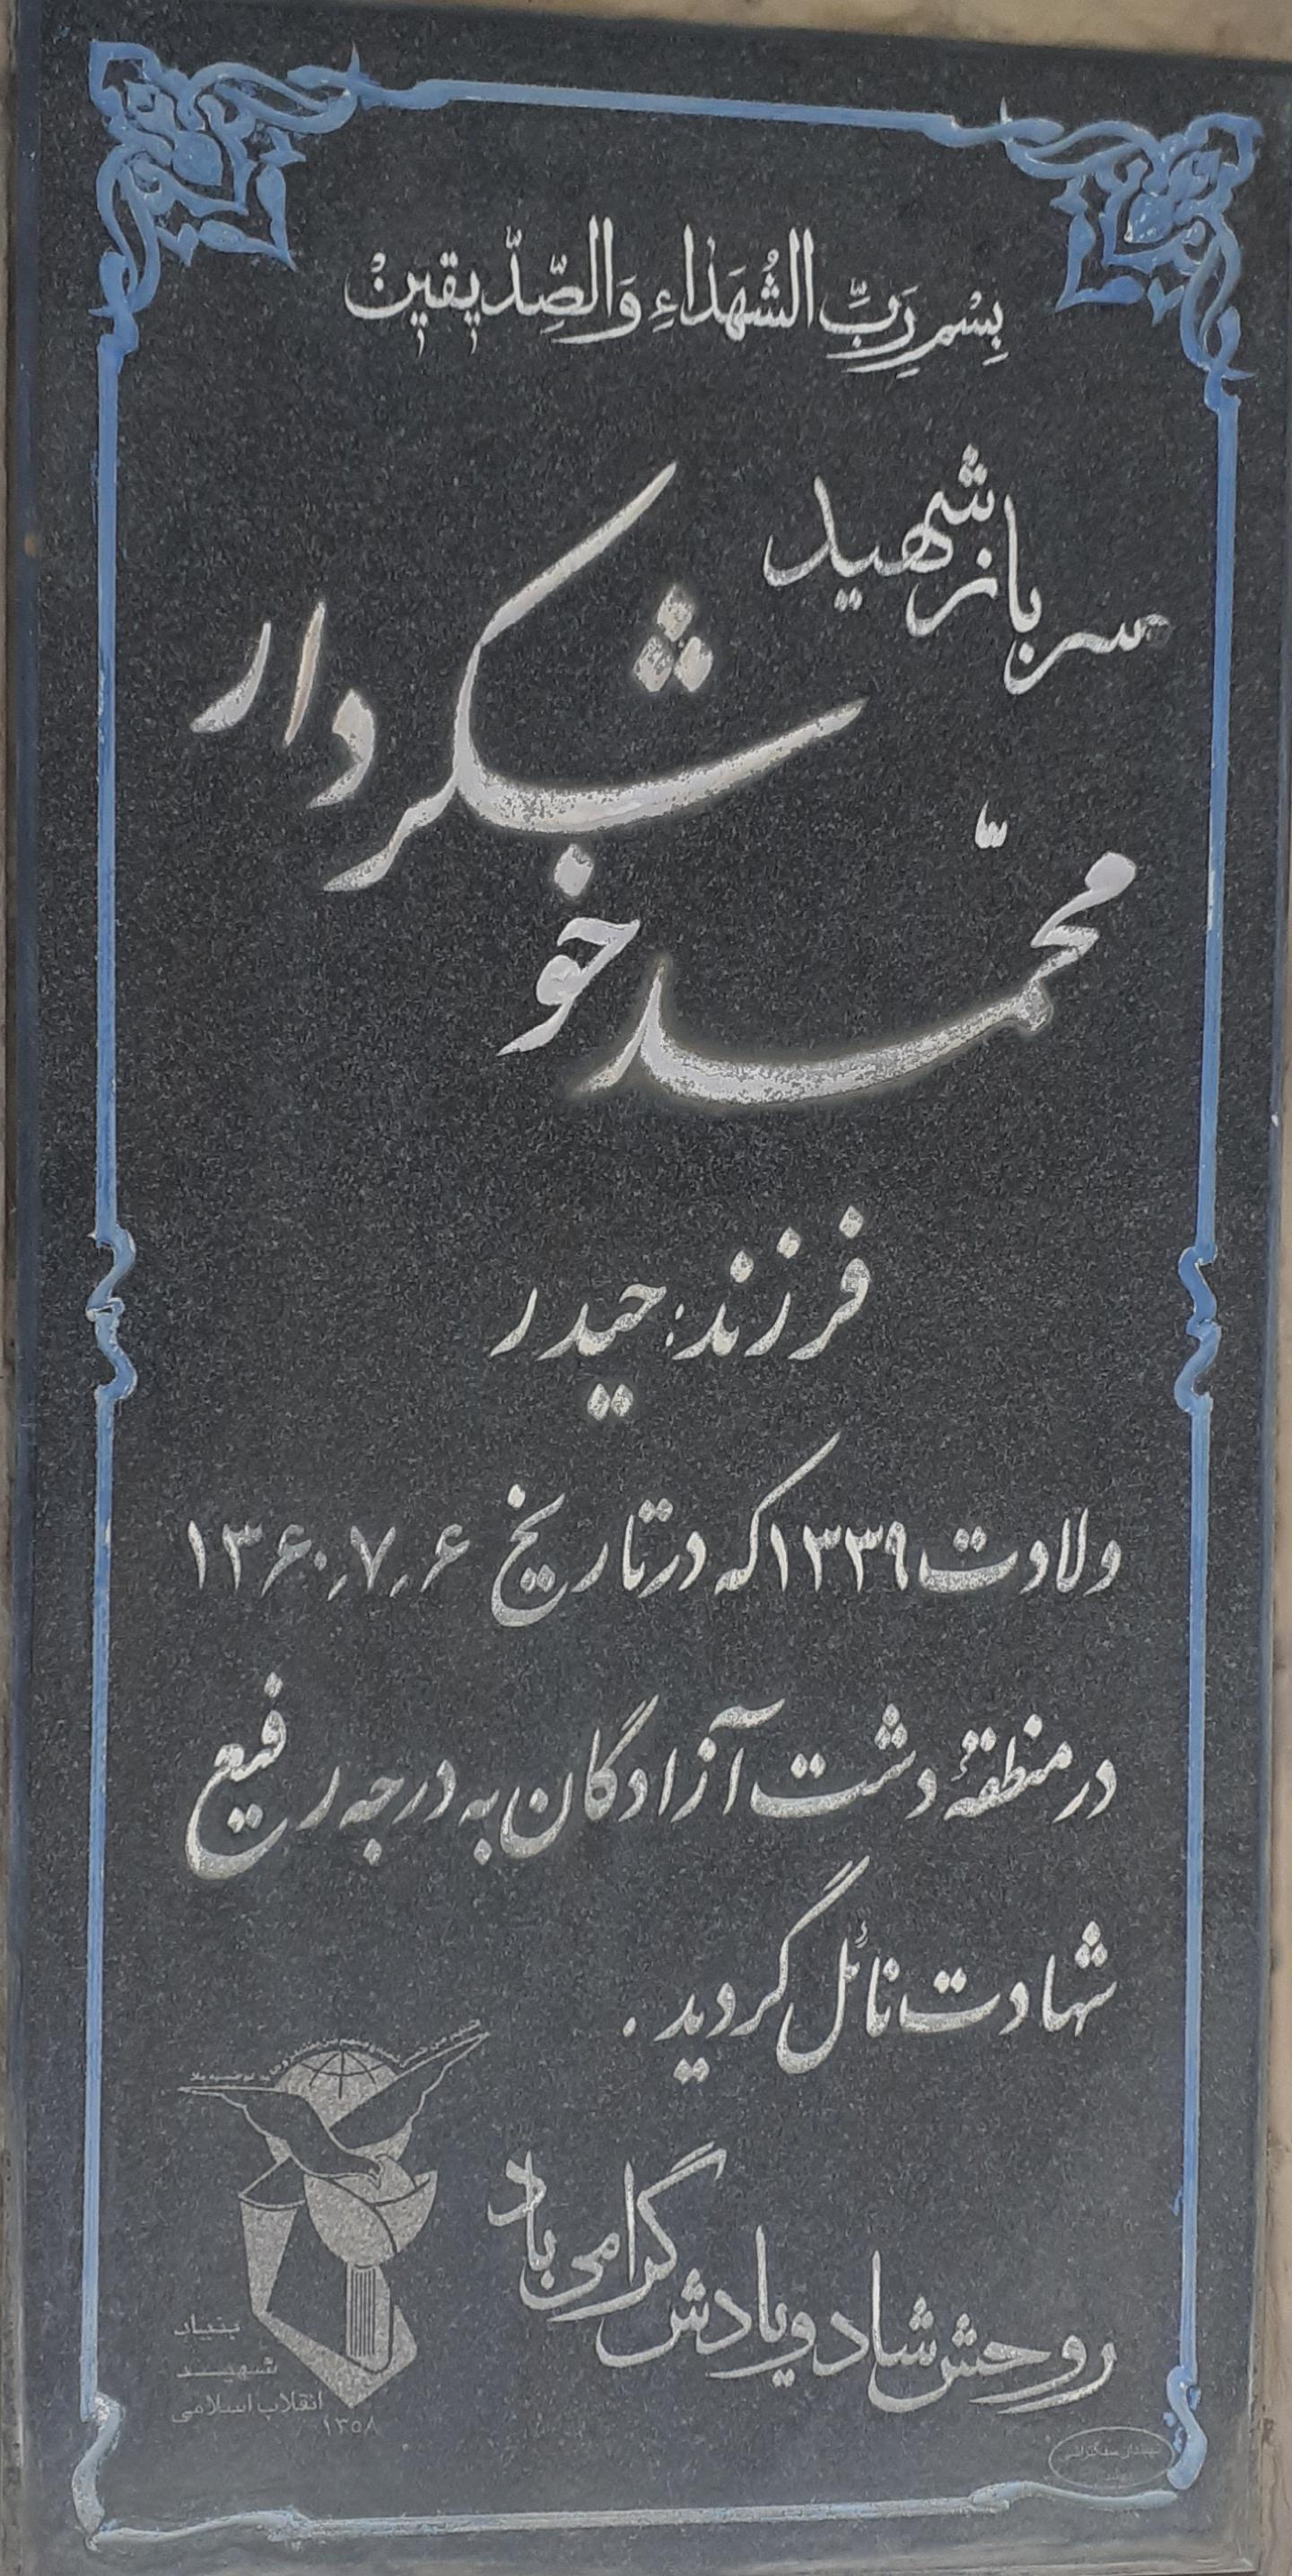 بِسْمِ رَبِّ الشُهَداءِ وَالصِّدّيقينْ
سرباز شهيد
محمّد خوشکردار
فرزند: حیدر
ولادت ۱۳۳۹ که در تاریخ ۶ر۷ر۱۳۶۰
در منطقهٔ دشت آزادگان به درجه رفیع
شهادت نائل گردید.
روحش شاد و یادش گرامی باد
بنیاد
شهید
انقلاب اسلامی
۱۳۵۸